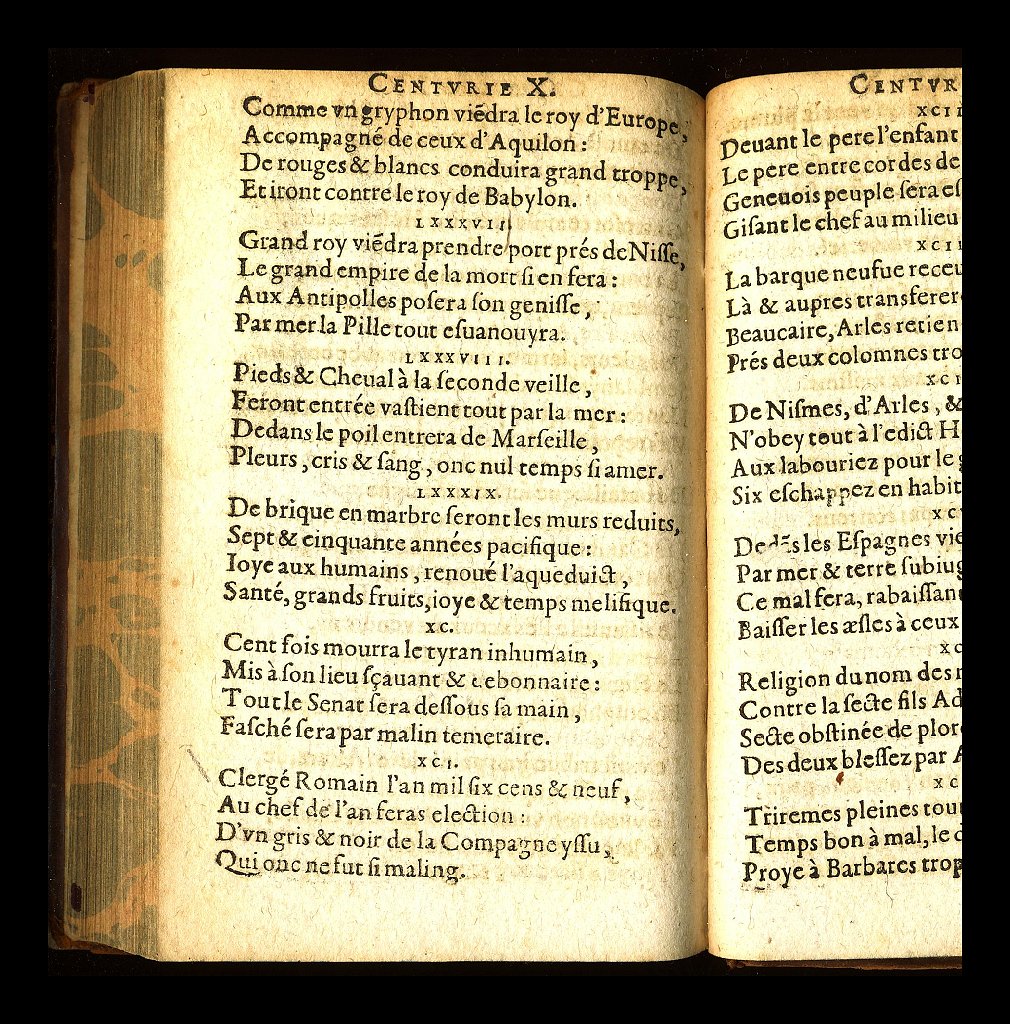 CENTVRIE X.
Comme vn gryphon viẽdra le roy d'Europe,
Accompagné de ceux d'Aquilon :
De rouges & blancs conduira grand troppe,
Et iront contre le roy de Babylon.
LXXXVII.
Grand roy viẽdra prendre port prés de Nisse,
Le grand empire de la mort si en fera :
Aux Antipolles posera son genisse,
Par mer la Pille tout esuanouyra.
LXXXVIII.
Pieds & Cheual à la seconde veille,
Feront entrée vastient tout par la mer :
Dedans le poil entrera de Marseille,
Pleurs, cris & sang, onc nul temps si amer.
LXXXIX.
De brique en marbre seront les murs reduits,
Sept & cinquante années pacifique :
Ioye aux humains, renoué l'aqueduict,
Santé, grands fruits, ioye & temps melifique.
XC.
Cent fois mourra le tyran inhumain,
Mis à son lieu sçauant & debonnaire :
Tout le Senat sera dessous sa main,
Fasché sera par malin temeraire.
XCI.
Clergé Romain l'an mil six cens & neuf,
Au chef de l'an feras election :
D'vn gris & noir de la Compagne yssu,
Qui onc ne fut si maling.
CENTVR
XCII
Deuant le pere l'enfant
Le pere entre cordes de
Geneuois peuple sera es
Gisant le chef au milieu
XCII
La barque neufue receu
Là & aupres transferer
Beaucaire, Arles retien
Prés deux colomnes tro
XCI
De Nismes, d'Arles, &
N'obey tout à l'edict H
Aux labouriez pour le g
Six eschappez en habit
XC
Dedãs les Espagnes vie
Par mer & terre subiug
Ce mal fera, rabaissan
Baisser les æsles à ceux
XC
Religion du nom des
Contre la secte fils Ad
Secte obstinée de plor
Des deux blessez par A
XC
Triremes pleines tou
Temps bon à mal, le d
Proye à Barbares trop